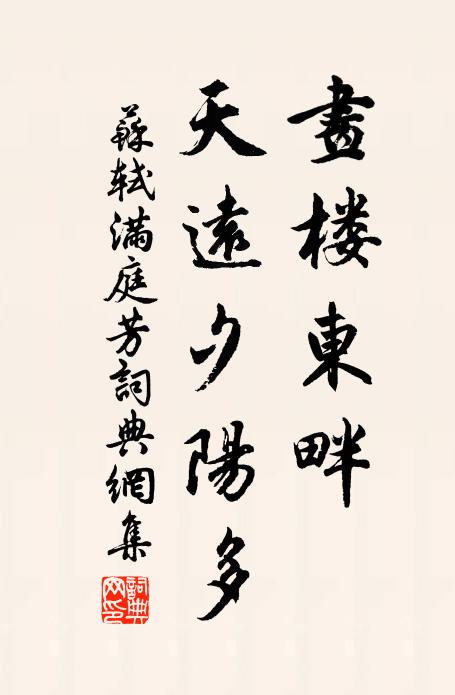 畫楼東畔
天遠夕陽多
蘇軾滿庭芳詞典網集
詞典
网印